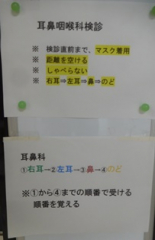 耳鼻咽喉科検診
※ 検診直前まで、マスク着用
※ 距離を空ける
※ しゃべらない
※ 右耳⇒左耳⇒鼻⇒のど
耳鼻科
①右耳→②左耳→③鼻→④のど
※①から④までの順番で受ける
順番を覚える